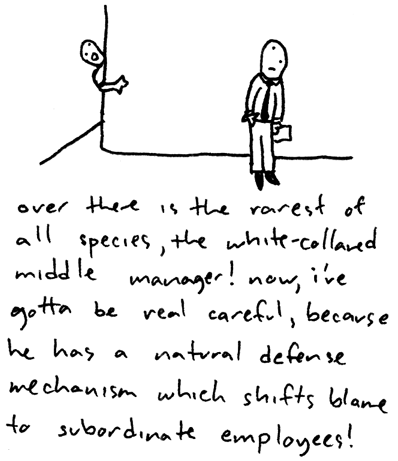 over there is the rarest of
all species, the white-collared
middle manager! now, i've
gotta be real careful, because
he has a natural defense
mechanism which shifts blame
to subordinate employees!